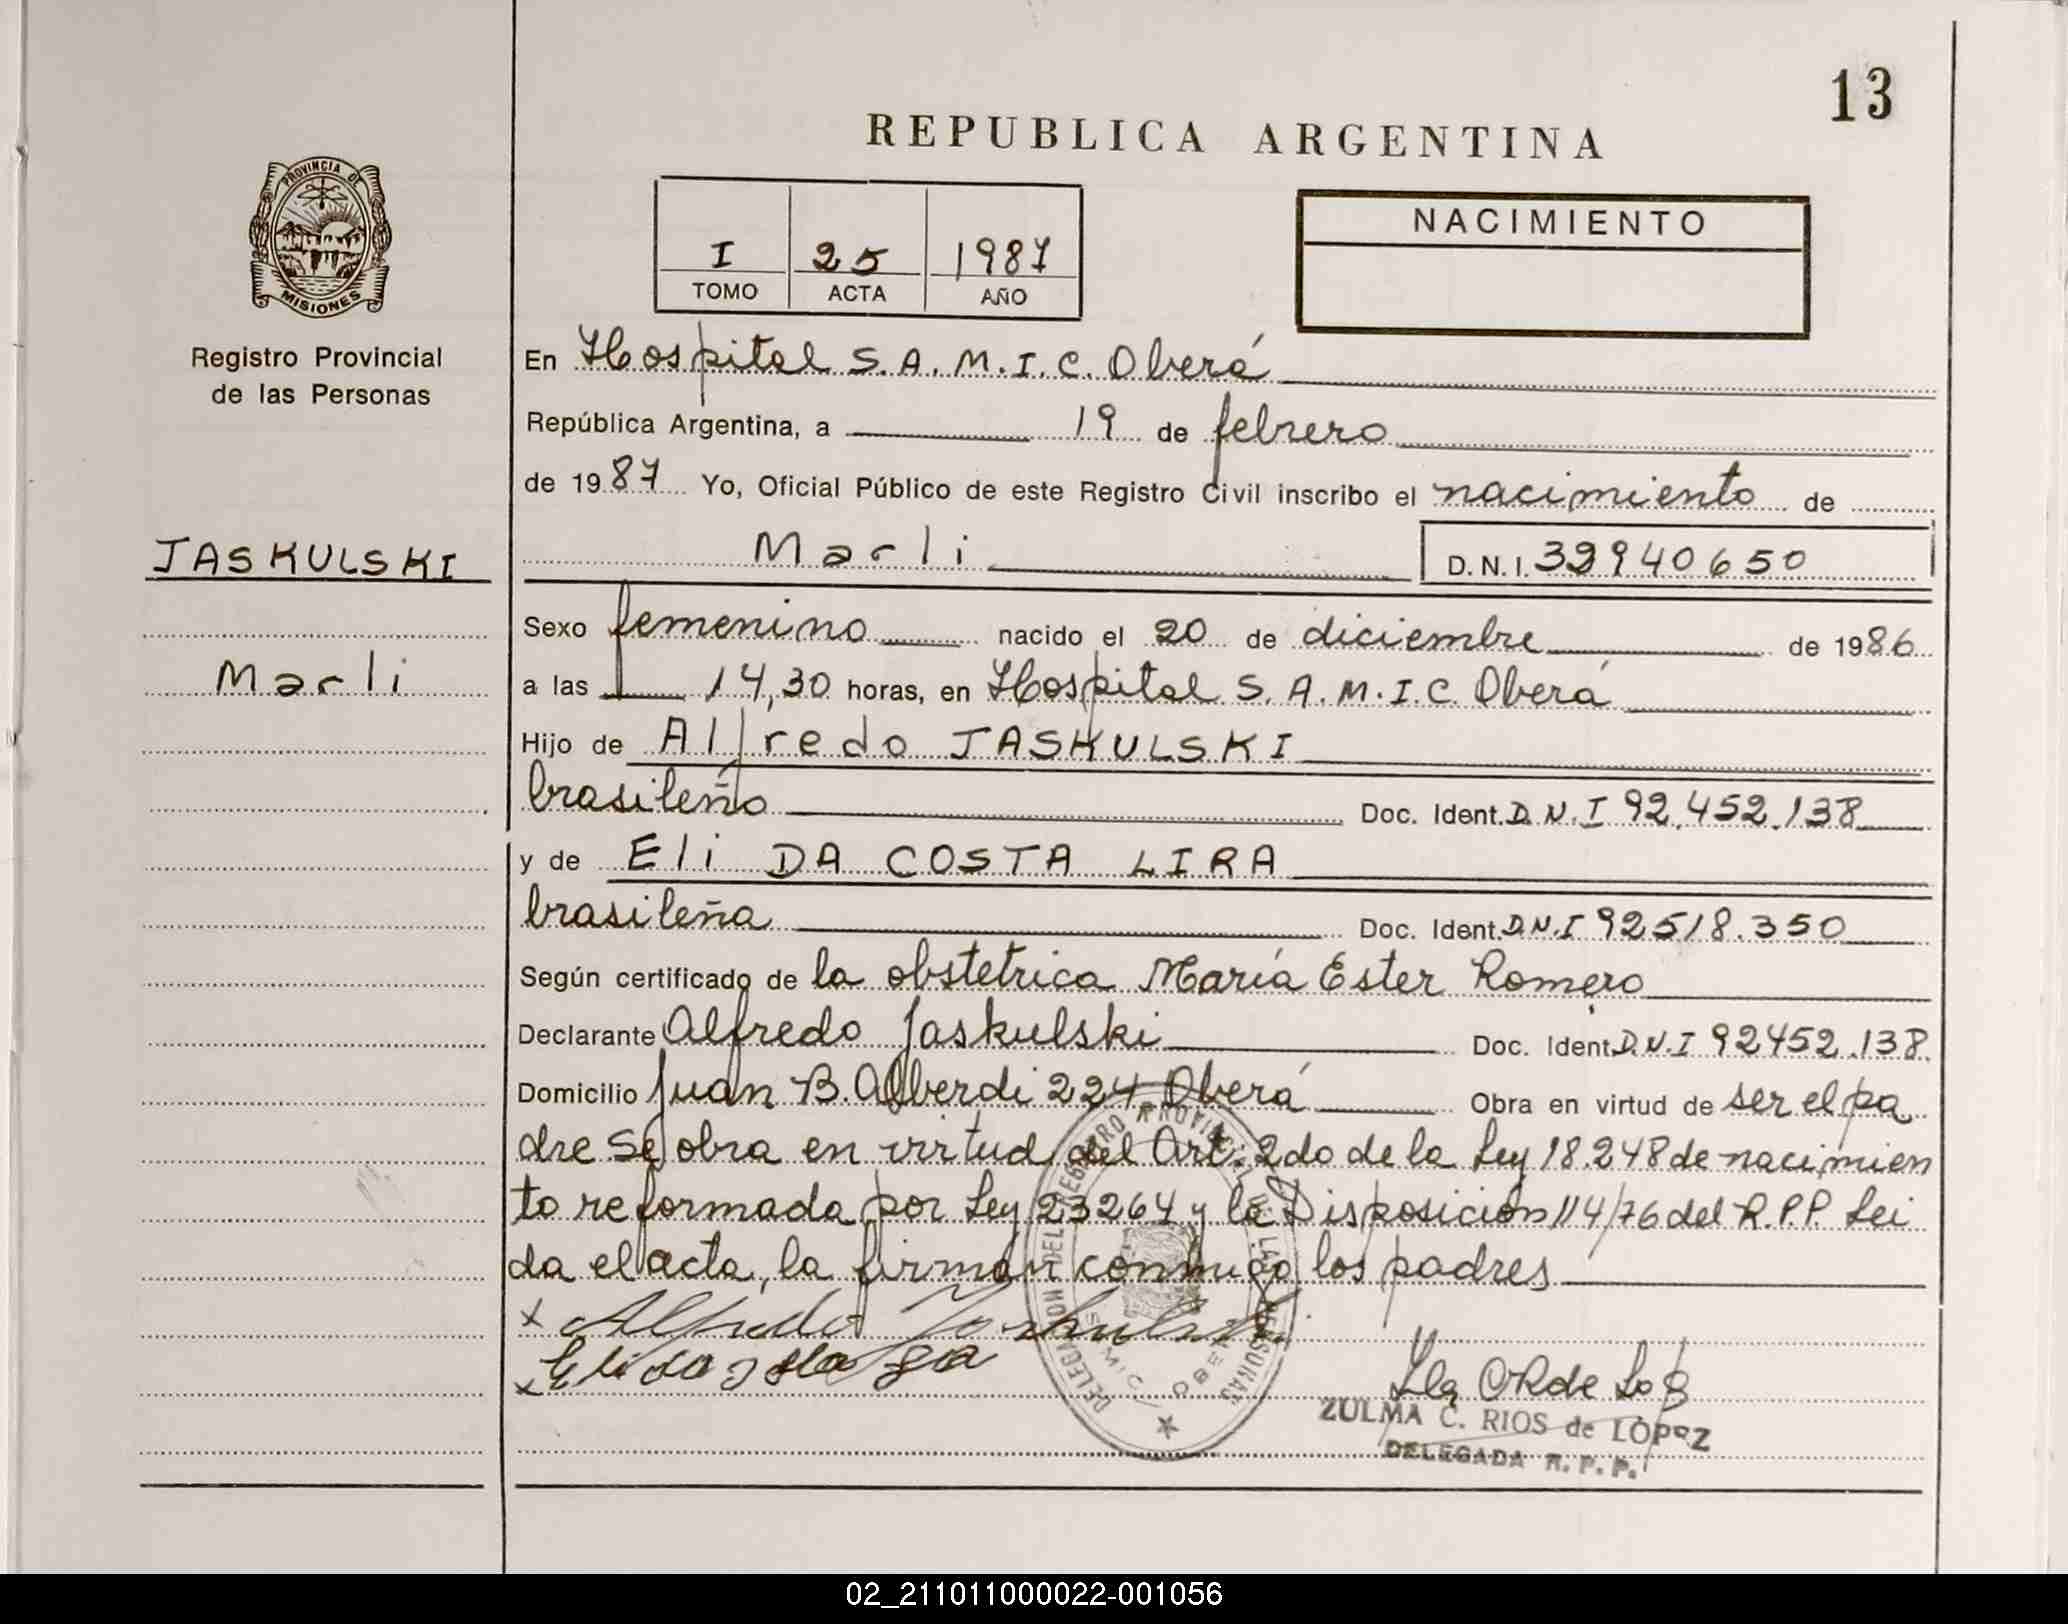 13
REPUBLICA ARGENTINA
PROVINCIA DE
MISIONES
Registro Provincial
de las Personas
I 25 1987
TOMO ACTA AÑO
NACIMIENTO
En Hospital S.A.M.I.C. Oberá
República Argentina, a 19 de febrero
de 1987 Yo, Oficial Público de este Registro Civil inscribo el nacimiento de
JASKULSKI
Marli
Marli D.N.I. 32940650
Sexo femenino nacido el 20 de diciembre de 1986
a las 14,30 horas, en Hospital S.A.M.I.C. Oberá
Hijo de Alfredo JASKULSKI
brasileño Doc. Ident. D.N.I 92.452.138
y de Eli DA COSTA LIRA
brasileña Doc. Ident. D.N.I 92518.350
Según certificado de la obstetrica María Ester Romero
Declarante Alfredo Jaskulski Doc. Ident. D.N.I 92452.138.
Domicilio Juan B. Alberdi 224 Oberá Obra en virtud de ser el pa
dre Se obra en virtud del Art. 2do de la Ley 18.248 de nacimien
to reformada por Ley 23264 y la Disposición 114/76 del R.P.P. Lei
da el acta, la firman conmigo los padres
x Alfredo Jaskulski
x
ZULMA C. RIOS de LOPEZ
DELEGADA R.P.P.
DELEGACION DEL REGISTRO PROVINCIAL DE LAS PERSONAS
02_211011000022-001056